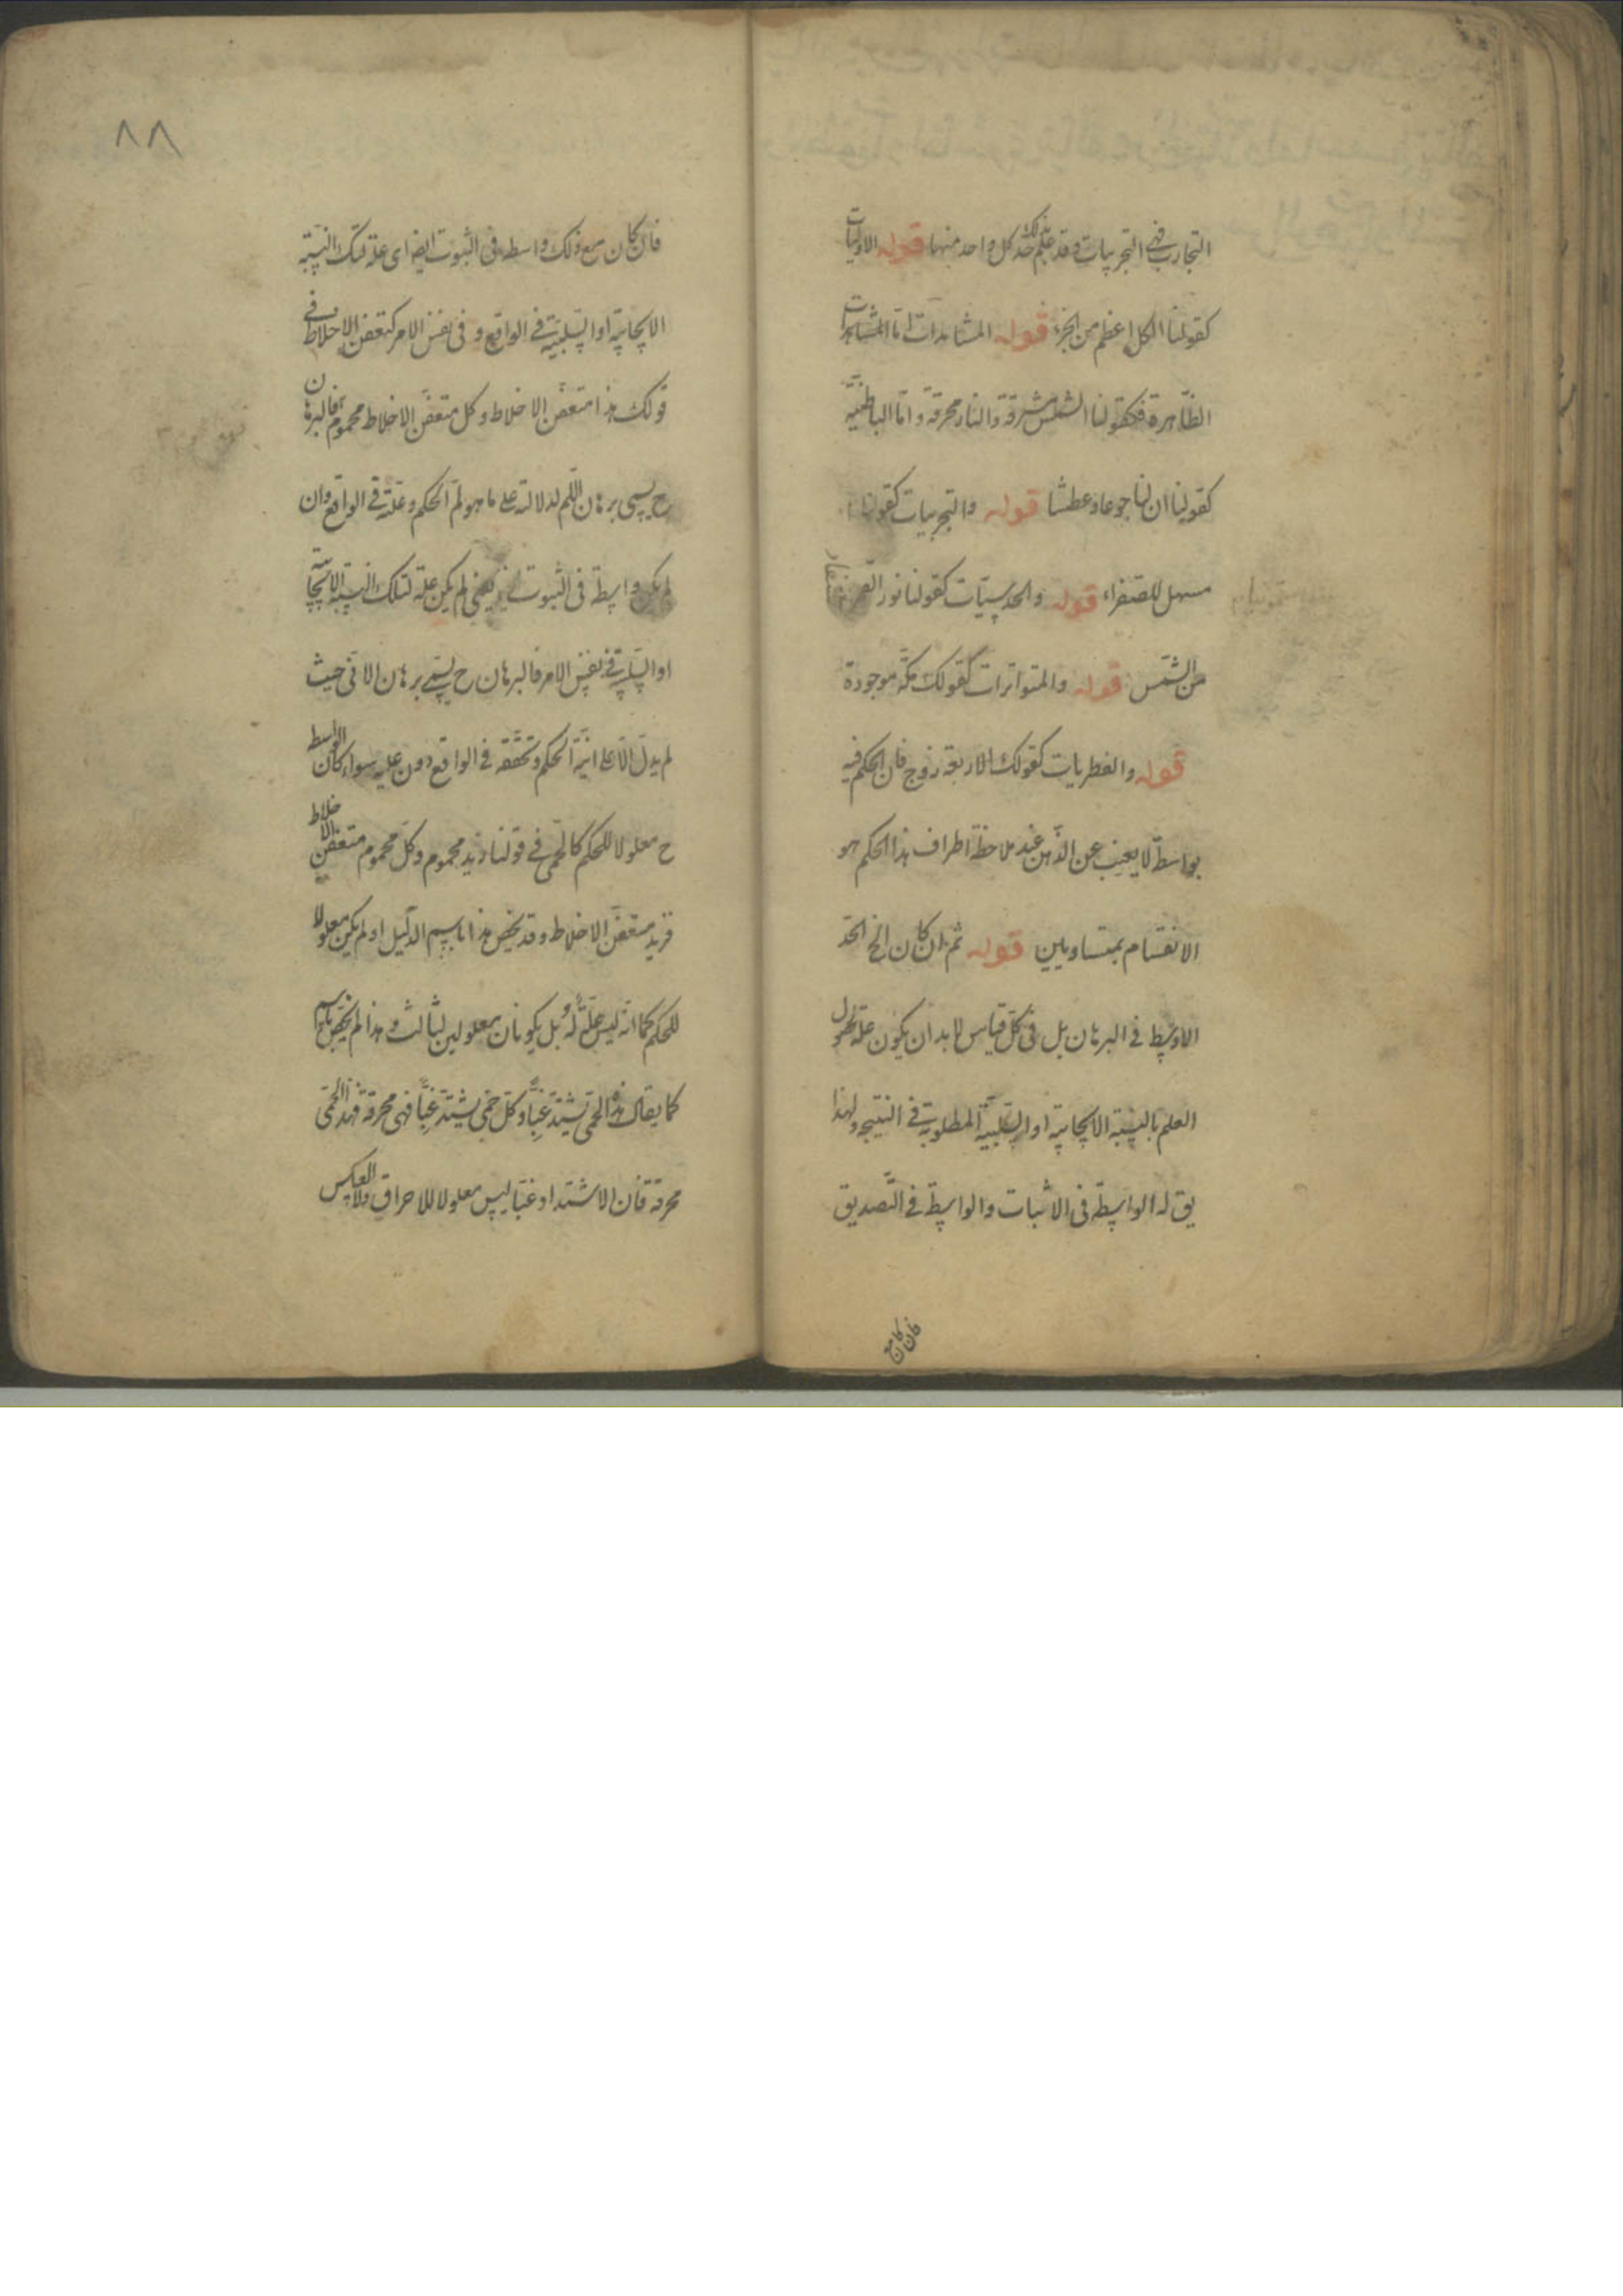 التجارب فهي التجربيات وقد علم بذلك حد كل واحد منها قوله الاوليات
كقولنا الكل اعظم من الجزء قوله المشاهدات اما المشاهدات
الظاهرة فكقولنا الشمس مشرقة والنار محرقة واما الباطنية
كقولنا ان لنا جوعا وعطشا قوله والتجربيات كقولنا
مسهل للصفراء قوله والحدسيات كقولنا نور القمر
من الشمس قوله والمتواترات كقولك مكة موجودة
قوله والفطريات كقولك الاربعة زوج فان الحكم فيه
بواسطة لا يغيب عن الذهن عند ملاحظة اطراف هذا الحكم هو
الانقسام بمتساويين قوله ثم ان كان الخ الحد
الاوسط في البرهان بل في كل قياس لابد ان يكون علة لحصول
العلم بالنسبة الايجابية او السلبية المطلوبة في النتيجة ولهذا
يق له الواسطة في الاثبات والواسطة في التصديق
فان كان مع
٨٨
فان كان مع ذلك واسطة في الثبوت ايضا اى علة لتلك النسبة
الايجابية او السلبية في الواقع وفي نفس الامر كتعفن الاخلاط في
قولك هذا متعفن الاخلاط وكل متعفن الاخلاط محموم فالبرهان
ح يسمى برهان اللم لدلالته على ما هو لم الحكم وعلته في الواقع وان
لم يكن واسطة في الثبوت يعني لم يكن علة لتلك النسبة الايجابية
او السلبية في نفس الامر فالبرهان ح يسمى برهان الان حيث
لم يدل الا على انية الحكم وتحققه في الواقع دون علته سواء كان الواسط
ح معلولا للحكم كالحمى في قولنا زيد محموم وكل محموم متعفن الاخلاط
فزيد متعفن الاخلاط وقد يخص هذا باسم الدليل او لم يكن معلولا
للحكم كما انه ليس علة له بل يكونان معلولين لثالث وهذا لم يخص باسم
كما يقال هذه الحمى تشتد غبا وكل حمى تشتد غبا فهي محرقة فهذه الحمى
محرقة فان الاشتداد غبا ليس معلولا للاحراق ولا العكس